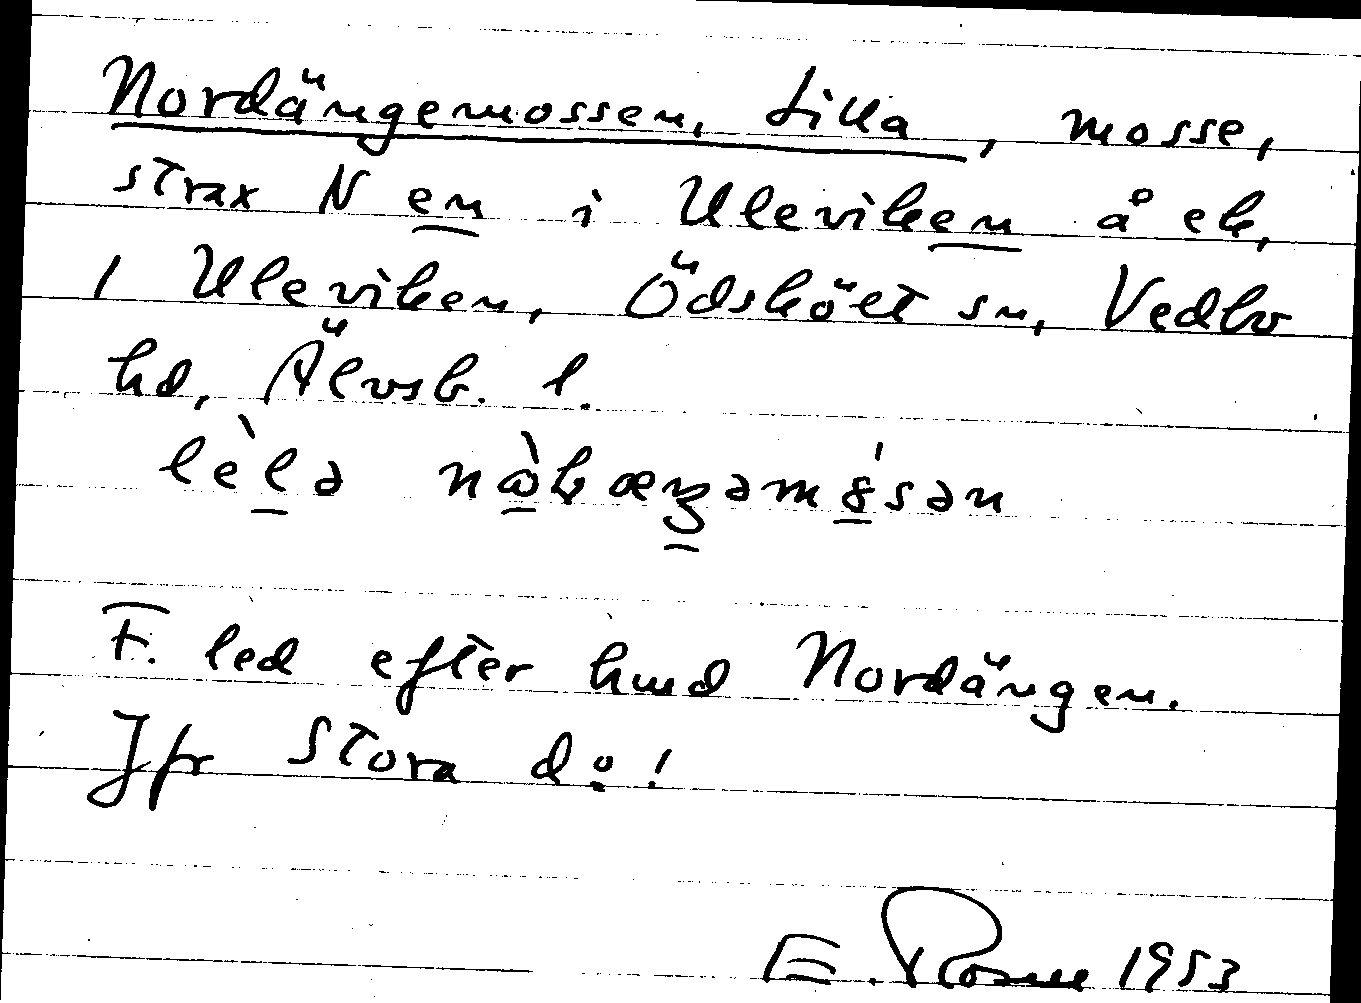 Nordängemossen, Lilla, mosse,
strax N en i Uleviken å ek.
1 Uleviken, Ödskölt sn, Vedbo
hd, Älvsb. l.
F. led efter hmd Nordängen.
Jfr Stora d:o!
E. 1953